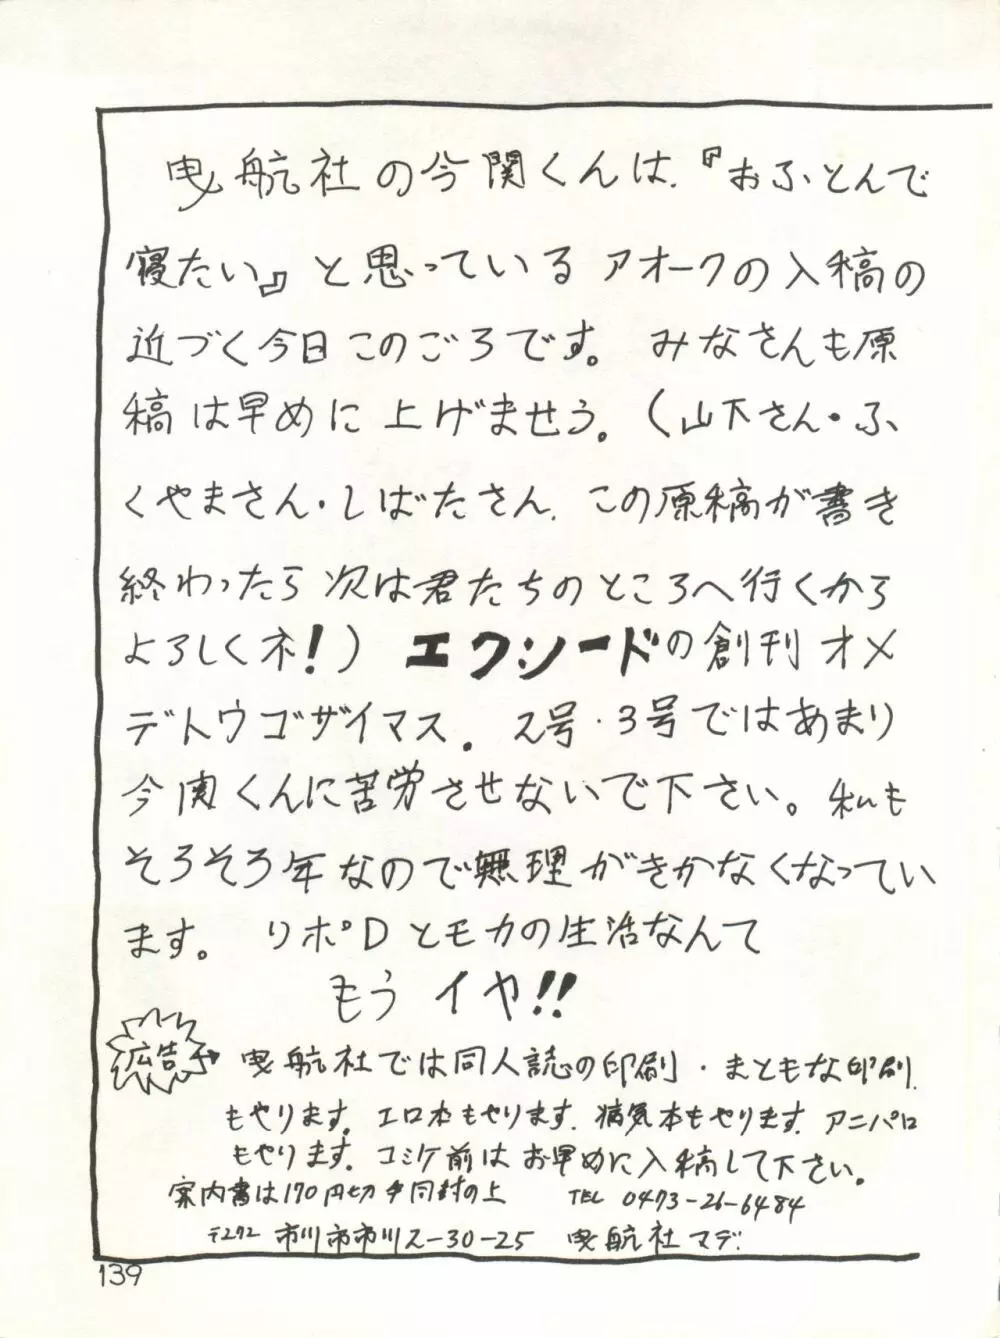 曳航社の今関くんは、『おふとんで
寝たい』と思っているアオークの入稿の
近づく今日このごろです。 みなさんも原
稿は早めに上げませう。(山下さん・ふ
くやまさん・しばたさん、この原稿が書き
終わったら次は君たちのところへ行くから
よろしくネ!) エクシードの創刊オメ
デトウゴザイマス。2号・3号ではあまり
今関くんに苦労させないで下さい。私も
そろそろ年なので無理がきかなくなってい
ます。 リポDとモカの生活なんて
もうイヤ!!
広告 曳航社では同人誌の印刷・まともな印刷
もやります。エロ本もやります。病気本もやります。アニパロ
もやります。コミケ前はお早めに入稿して下さい。
案内書は170円切手同封の上 TEL 0473-26-6484
〒272 市川市市川2-30-25 曳航社マデ。
139